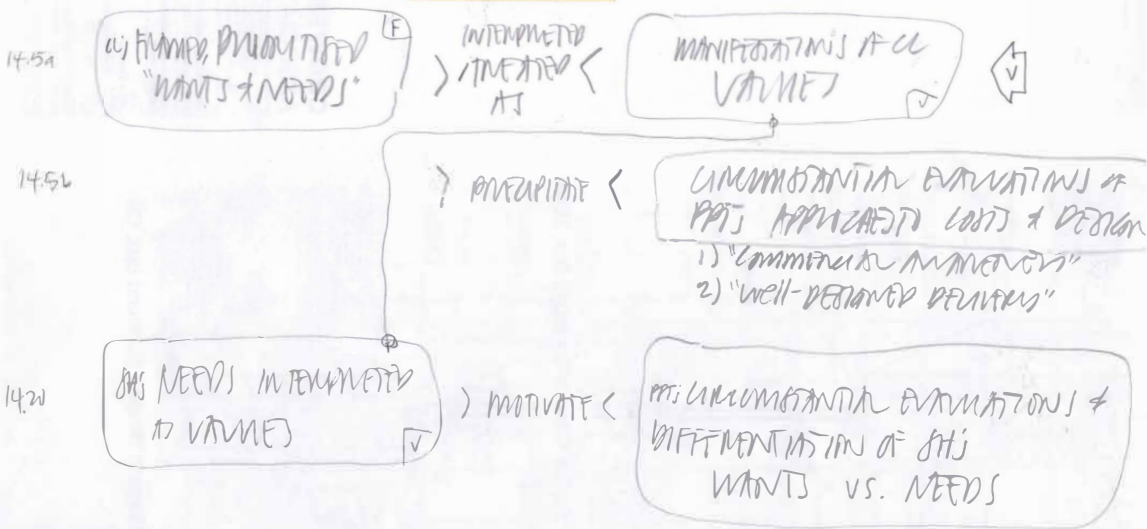 14.5a
CL'S FRAMED, PRIORITISED [F]
"WANTS & NEEDS"
> INTERPRETED
/TREATED <
AS
MANIFESTATIONS OF CL
VALUES [V]
V
14.5b
> PRECIPITATE <
CIRCUMSTANTIAL EVALUATIONS OF
PPT'S APPROACHES TO COSTS & DESIGN
1) "COMMERCIAL AWARENESS"
2) "WELL-DESIGNED DELIVERS"
SH'S NEEDS INTERPRETED
AS VALUES [V]
> MOTIVATE <
PPT'S CIRCUMSTANTIAL EVALUATIONS &
DIFFERENTIATION OF SH'S
WANTS VS. NEEDS